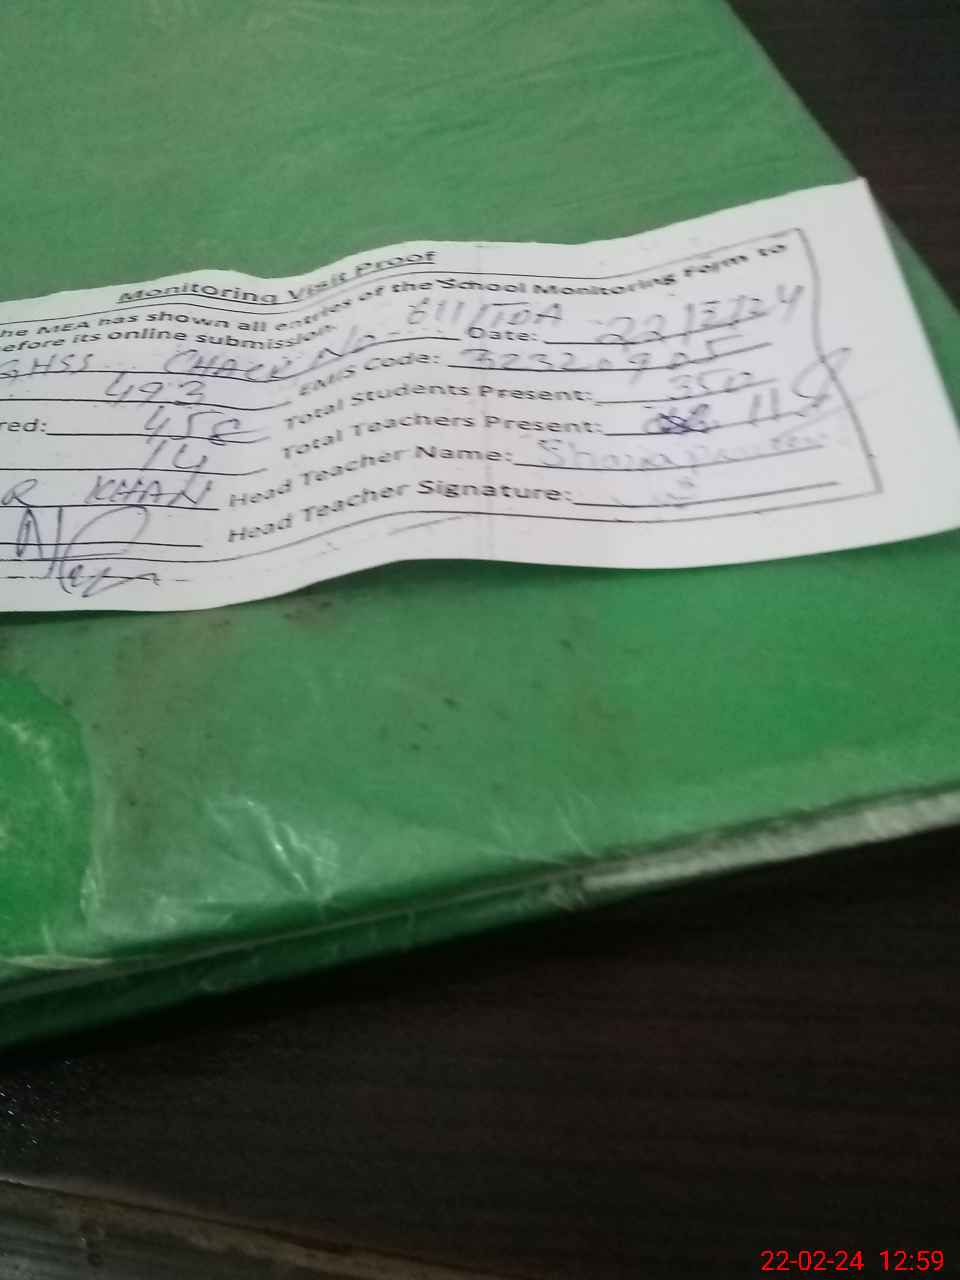 Monitoring Visit Proof
he MEA has shown all entries of the School Monitoring Form to
efore its online submission.
GHSS CHACK No 611/TDA Date: 22/2/24
493 EMIS Code: 32320905
red: 458 Total Students Present: 350
14 Total Teachers Present: 11
R KHAN Head Teacher Name:
Head Teacher Signature:
22-02-24 12:59